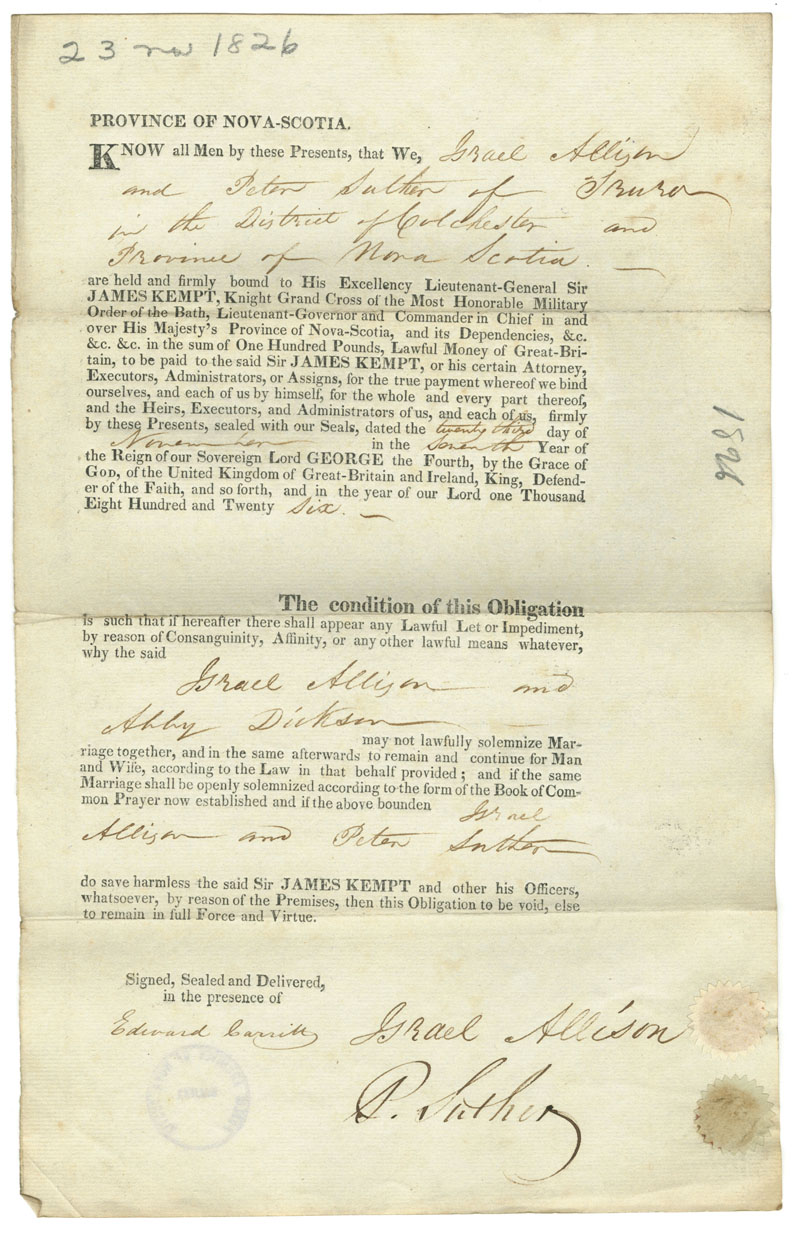 23 nov 1826
PROVINCE OF NOVA-SCOTIA.
KNOW all Men by these Presents, that We, Israel Allison
and Peter Suther of Truro
in the District of Colchester and
Province of Nova Scotia.
are held and firmly bound to His Excellency Lieutenant-General Sir
JAMES KEMPT, Knight Grand Cross of the Most Honorable Military
Order of the Bath, Lieutenant-Governor and Commander in Chief in and
over His Majesty's Province of Nova-Scotia, and its Dependencies, &c.
&c. &c. in the sum of One Hundred Pounds, Lawful Money of Great-Bri-
tain, to be paid to the said Sir JAMES KEMPT, or his certain Attorney,
Executors, Administrators, or Assigns, for the true payment whereof we bind
ourselves, and each of us by himself, for the whole and every part thereof,
and the Heirs, Executors, and Administrators of us, and each of us, firmly
by these Presents, sealed with our Seals, dated the twenty third day of
November in the Seventh Year of
the Reign of our Sovereign Lord GEORGE the Fourth, by the Grace of
God, of the United Kingdom of Great-Britain and Ireland, King, Defend-
er of the Faith, and so forth, and in the year of our Lord one Thousand
Eight Hundred and Twenty Six.
1826
The condition of this Obligation
is such that if hereafter there shall appear any Lawful Let or Impediment,
by reason of Consanguinity, Affinity, or any other lawful means whatever,
why the said
Israel Allison and
Abby Dickson
may not lawfully solemnize Mar-
riage together, and in the same afterwards to remain and continue for Man
and Wife, according to the Law in that behalf provided; and if the same
Marriage shall be openly solemnized according to the form of the Book of Com-
mon Prayer now established and if the above bounden Israel
Allison and Peter Suther
do save harmless the said Sir JAMES KEMPT and other his Officers,
whatsoever, by reason of the Premises, then this Obligation to be void, else
to remain in full Force and Virtue.
Signed, Sealed and Delivered,
in the presence of
Edward Carritt Israel Allison
P. Suther